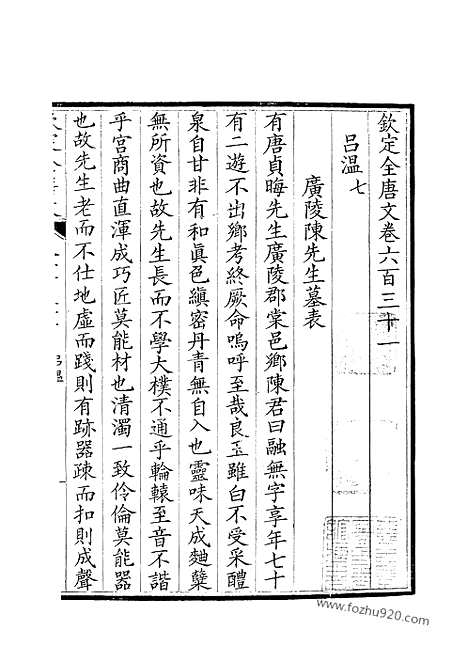 欽定全唐文卷六百三十一
呂溫七
廣陵陳先生墓表
有唐貞晦先生廣陵郡棠邑鄉陳君曰融無字享年七十
有二遊不出鄉考終厥命嗚呼至哉良玉雖白不受采醴
泉自甘非有和眞色縝密丹青無自入也靈味天成麯糵
無所資也故先生長而不學大樸不通乎輪轅至音不諧
乎宮商曲直渾成巧匠莫能材也清濁一致伶倫莫能器
也故先生老而不仕地虛而踐則有跡器疎而扣則成聲
呂溫
www.fozhu920.com